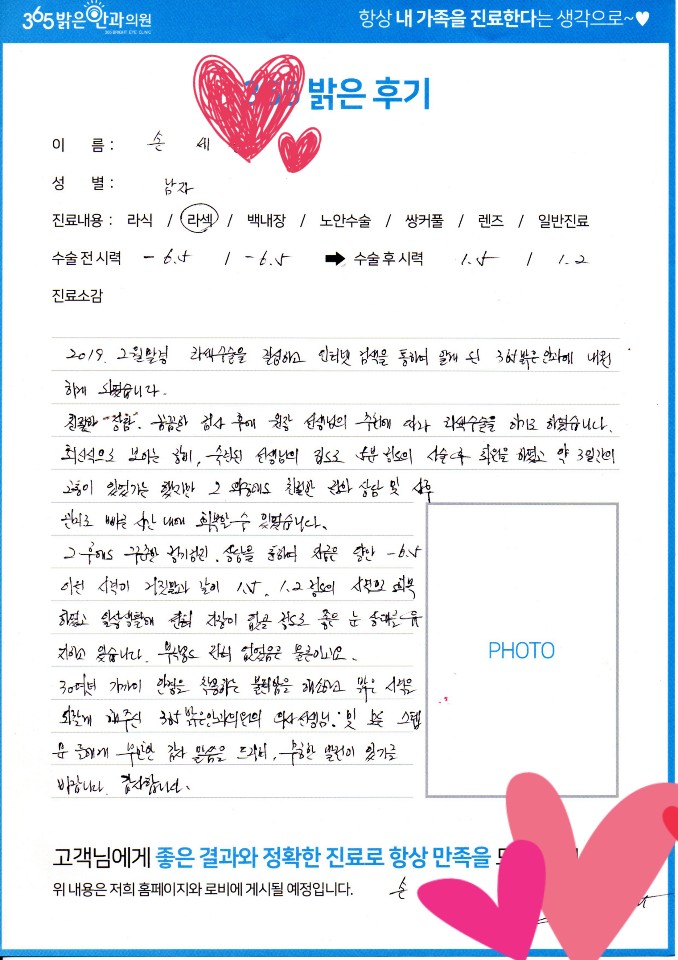 365밝은안과의원
항상 내 가족을 진료한다는 생각으로~♥
밝은 후기
이 름 : 손 세
성 별 : 남자
진료내용 : 라식 / 라섹 / 백내장 / 노안수술 / 쌍커풀 / 렌즈 / 일반진료
수술 전 시력 -6.5 / -6.5 ➡ 수술 후 시력 1.5 / 1.2
진료소감
2019. 2월말경 라섹수술을 결심하고 인터넷 검색을 통하여 알게 된 365밝은안과에 내원
하게 되었습니다.
친절한 상담. 꼼꼼한 검사 후에 원장 선생님의 추천에 따라 라섹수술을 하기로 하였습니다.
최신식으로 보이는 장비, 숙련된 선생님의 집도로 5분 정도의 시술 후 회복을 하였고 약 3일간의
고통이 있었기는 했지만 그 와중에도 친절한 전화 상담 및 사후
관리로 빠른 시간 내에 회복할 수 있었습니다.
그 후에도 꾸준한 정기검진, 상담을 통하여 지금은 양안 -6.5
이던 시력이 거짓말과 같이 1.5, 1.2 정도의 시력으로 회복
하였고 일상생활에 전혀 지장이 없을 정도로 좋은 눈 상태를 유
지하고 있습니다. 부작용도 전혀 없었음은 물론이니요.
30여년 가까이 안경을 착용하는 불편함을 해소하고 밝은 시력을
되찾게 해주신 365밝은안과의원의 의사선생님. 및 모든 스텝
분들에게 무한한 감사 말씀을 드리며, 무궁한 발전이 있기를
바랍니다. 감사합니다.
PHOTO
고객님에게 좋은 결과와 정확한 진료로 항상 만족을
위 내용은 저희 홈페이지와 로비에 게시될 예정입니다. 손